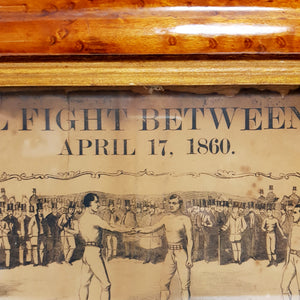 FIGHT BETWEEN
APRIL 17, 1860.